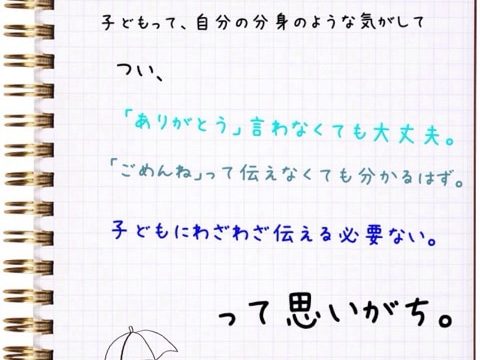 子どもって、自分の分身のような気がして
つい、
「ありがとう」言わなくても大丈夫。
「ごめんね」って伝えなくても分かるはず。
子どもにわざわざ伝える必要ない。
って思いがち。